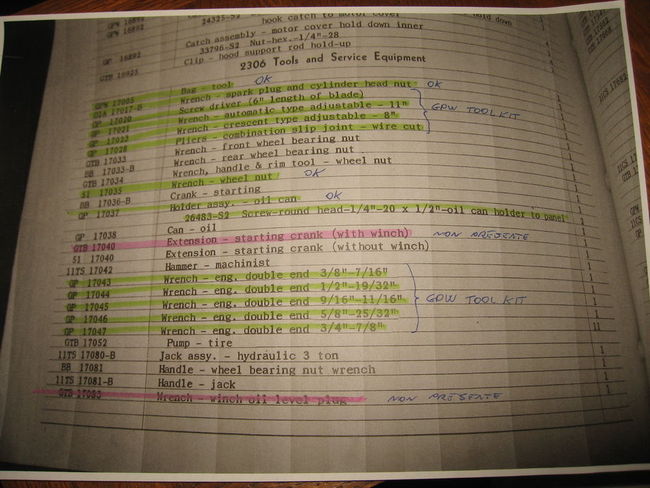 GPW 16892 hook catch to motor cover
Catch assembly - motor cover hold down inner
33796-S2 Nut-hex.-1/4"-28
GP 16892 Clip - hood support rod hold-up
2306 Tools and Service Equipment
Bag - tool OK
GPW 17005 Wrench - spark plug and cylinder head nut OK
17017-B Screw driver (6" length of blade)
GP 17020 Wrench - automatic type adjustable - 11"
GP 17021 Wrench - crescent type adjustable - 8" GPW TOOLKIT
GP 17022 Pliers - combination slip joint - wire cut
GP 17028 Wrench - front wheel bearing nut
GTB 17033 Wrench - rear wheel bearing nut
BB 17033-B Wrench, handle & rim tool - wheel nut
GTB 17034 Wrench - wheel nut OK
51 17035 Crank - starting
BB 17036-B Holder assy. - oil can OK
GP 17037 26483-S2 Screw-round head-1/4"-20 x 1/2"-oil can holder to panel
GP 17038 Can - oil
GTB 17040 Extension - starting crank (with winch) NON PRESENTE
51 17040 Extension - starting crank (without winch)
11TS 17042 Hammer - machinist
GP 17043 Wrench - eng. double end 3/8"-7/16"
GP 17044 Wrench - eng. double end 1/2"-19/32"
GP 17045 Wrench - eng. double end 9/16"-11/16" GPW TOOL KIT
GP 17046 Wrench - eng. double end 5/8"-25/32"
GP 17047 Wrench - eng. double end 3/4"-7/8" 11
GTB 17052 Pump - tire
11TS 17080-B Jack assy. - hydraulic 3 ton
BB 17081 Handle - wheel bearing nut wrench
11TS 17081-B Handle - jack
GTB 17083 Wrench - winch oil level plug NON PRESENTE